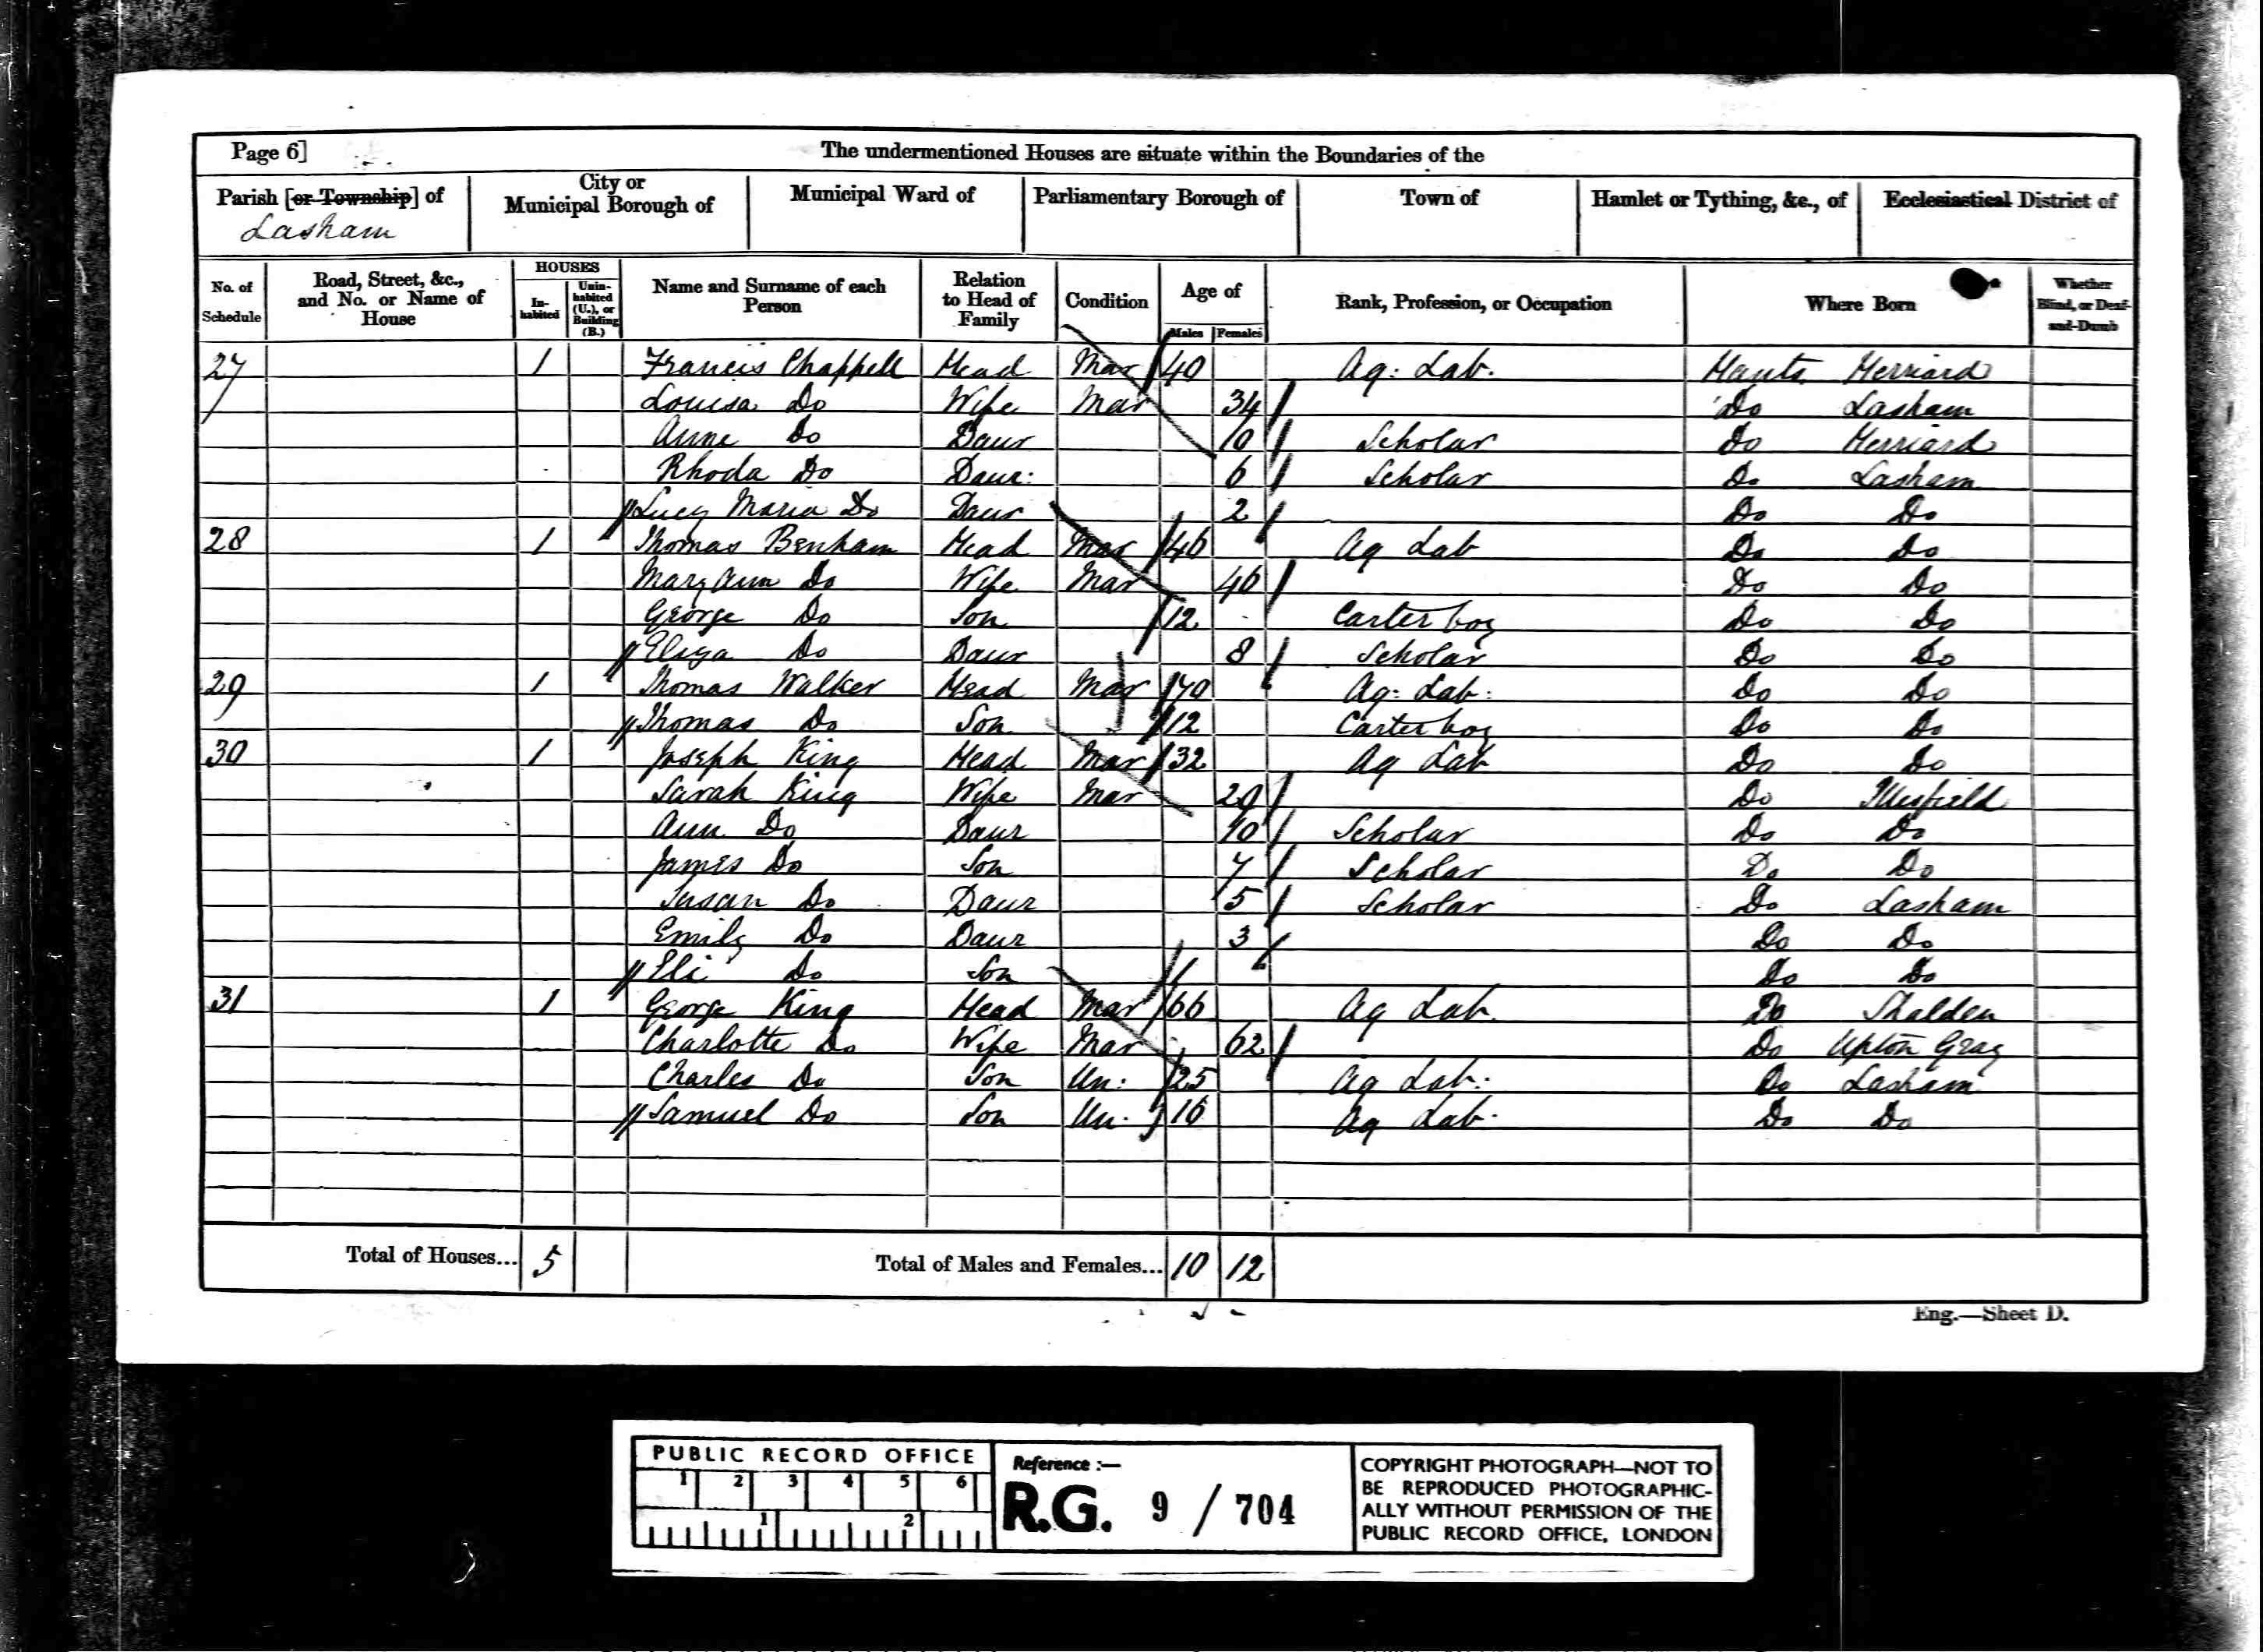 Page 6]
The undermentioned Houses are situate within the Boundaries of the
Parish [or Township] of Lasham
City or Municipal Borough of
Municipal Ward of
Parliamentary Borough of
Town of
Hamlet or Tything, &c., of
Ecclesiastical District of
No. of Schedule
Road, Street, &c., and No. or Name of House
HOUSES
In-habited
Unin-habited (U.), or Building (B.)
Name and Surname of each Person
Relation to Head of Family
Condition
Age of
Males
Females
Rank, Profession, or Occupation
Where Born
Whether Blind, or Deaf-and-Dumb
27 1 Francis Chappell Head Mar 40 Ag: Lab. Hants Herriard
Louisa Do Wife Mar 34 Do Lasham
Anne Do Daur 10 Scholar Do Herriard
Rhoda Do Daur: 6 Scholar Do Lasham
Lucy Maria Do Daur 2 Do Do
28 1 Thomas Benham Head Mar 46 Ag Lab Do Do
Mary Ann Do Wife Mar 46 Do Do
George Do Son 12 Carter boy Do Do
Eliza Do Daur 8 Scholar Do Do
29 1 Thomas Walker Head Mar 70 Ag: Lab: Do Do
Thomas Do Son 12 Carter boy Do Do
30 1 Joseph King Head Mar 32 Ag Lab Do Do
Sarah King Wife Mar 29 Do Illesfield
Ann Do Daur 10 Scholar Do Do
James Do Son 7 Scholar Do Do
Susan Do Daur 5 Scholar Do Lasham
Emily Do Daur 3 Do Do
Eli Do Son 1 Do Do
31 1 George King Head Mar 66 Ag Lab. Do Shalden
Charlotte Do Wife Mar 62 Do Upton Gray
Charles Do Son Un: 25 Ag Lab: Do Lasham
Samuel Do Son Un. 16 Ag Lab. Do Do
Total of Houses... 5
Total of Males and Females... 10 12
Eng.—Sheet D.
PUBLIC RECORD OFFICE
1 2 3 4 5 6
1 2
Reference :—
R.G. 9 / 704
COPYRIGHT PHOTOGRAPH—NOT TO
BE REPRODUCED PHOTOGRAPHIC-
ALLY WITHOUT PERMISSION OF THE
PUBLIC RECORD OFFICE, LONDON